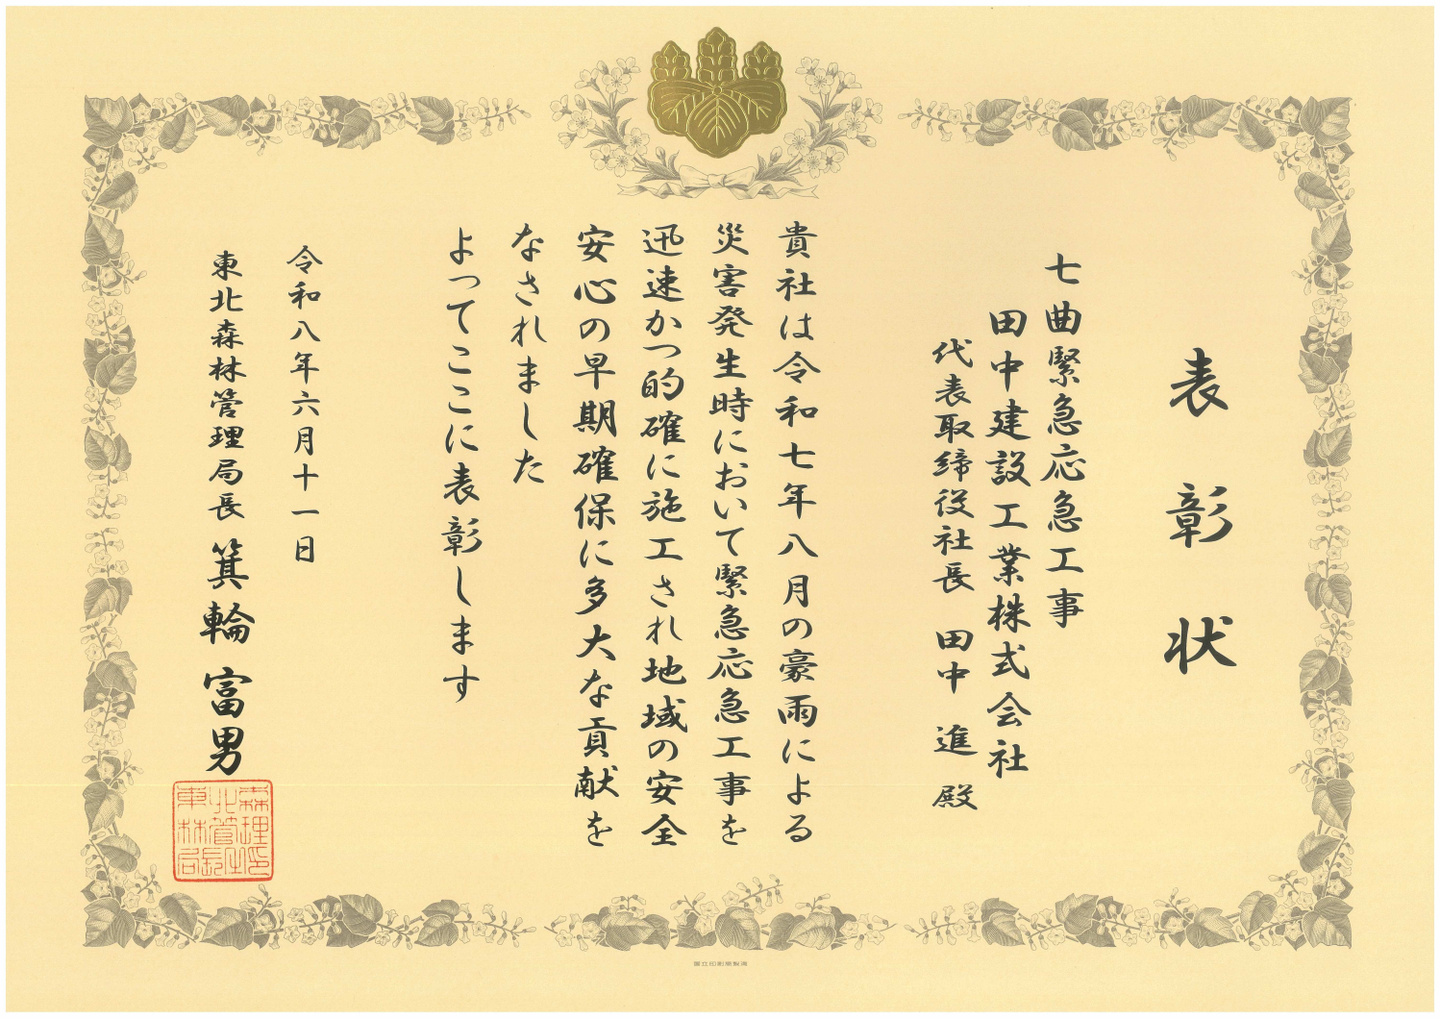 表彰状
七曲緊急応急工事
田中建設工業株式会社
代表取締役社長 田中 進 殿
貴社は令和七年八月の豪雨による
災害発生時において緊急応急工事を
迅速かつ的確に施工され地域の安全
安心の早期確保に多大な貢献を
なされました
よってここに表彰します
令和八年六月十一日
東北森林管理局長 箕輪 富男